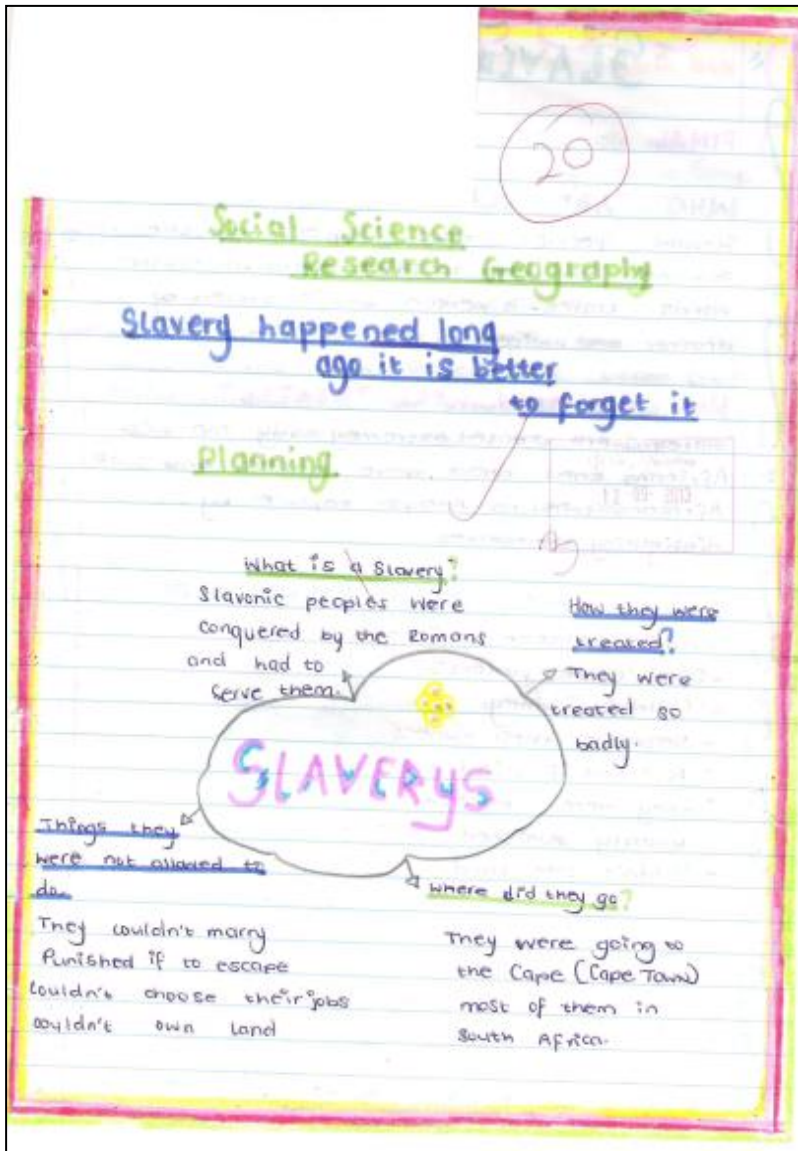 20
Social Science
Research Geography
Slavery happened long
ago it is better
to forget it
Planning
What is a Slavery?
Slavonic peoples were
conquered by the Romans
and had to
serve them.
How they were
treated?
They were
treated so
badly.
SLAVERYS
Things they
were not allowed to
do.
They couldn't marry
Punished if to escape
couldn't choose their jobs
couldn't own land
where did they go?
They were going to
the Cape (Cape Town)
most of them in
South Africa.